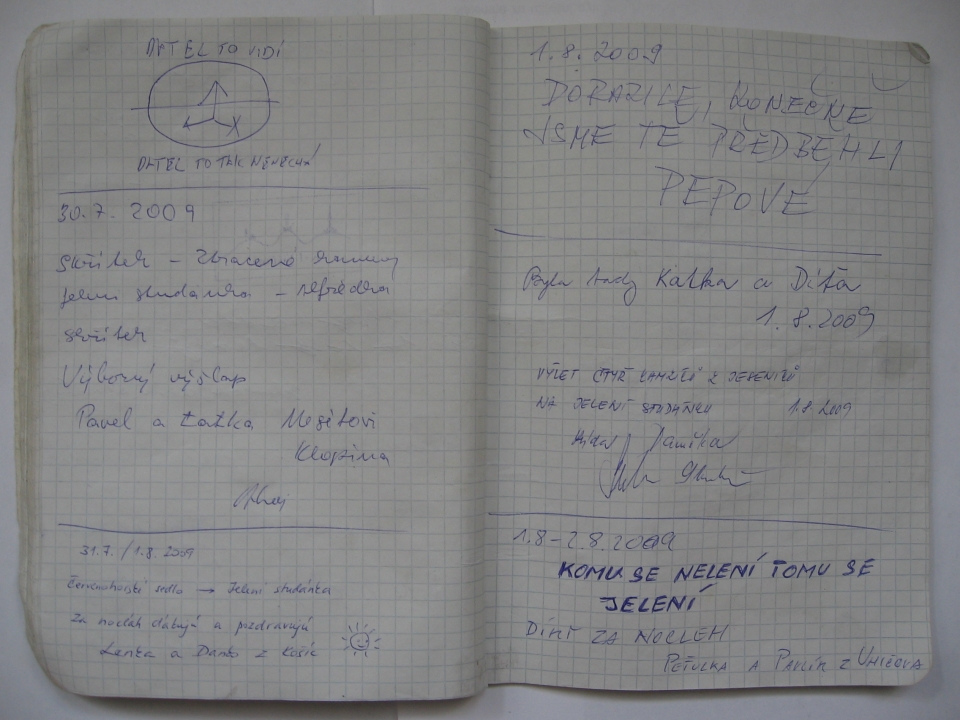 DATEL TO VIDÍ
DATEL TO TAK NENECHÁ
30.7. 2009
Skřítek – Ztracené kameny
Jelení studánka –
skřítek
Výborný výšlap
Pavel a Katka
Klopina
Ahoj
31.7. / 1.8. 2009
Červenohorské sedlo → Jelení studánka
Za nocleh děkují a pozdravují
Lenka a Dano z Košíc
1.8. 2009
DORAZILE, KONEČNĚ
JSME TĚ PŘEDBĚHLI
PEPOVÉ
Byla tady Katka a Díťa
1.8.2009
VÝLET ČTYŘ KAMZÍKŮ Z JESENÍKŮ
NA JELENÍ STUDÁNKU 1.8.2009
1.8-2.8.2009
KOMU SE NELENÍ TOMU SE
JELENÍ
DÍKY ZA NOCLEH
PEŤULKA A PAVLÍK Z UNIČOVA